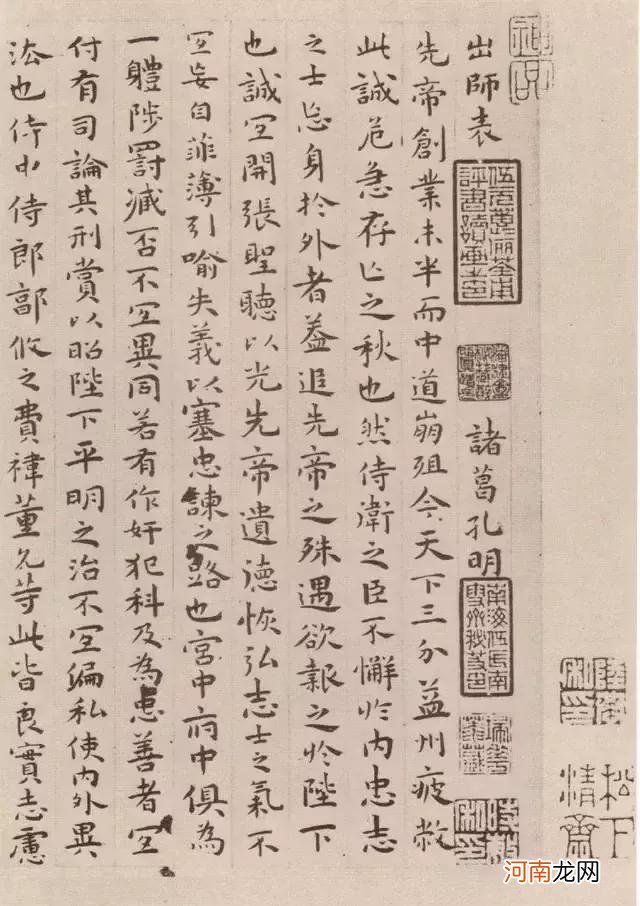 松下
清齋
出師表 諸葛孔明
先帝創業未半而中道崩殂今天下三分益州疲敝
此誠危急存亡之秋也然侍衛之臣不懈於內忠志
之士忘身於外者蓋追先帝之殊遇欲報之於陛下
也誠宜開張聖聽以光先帝遺德恢弘志士之氣不
宜妄自菲薄引喻失義以塞忠諫之路也宮中府中俱為
一體陟罰臧否不宜異同若有作奸犯科及為忠善者宜
付有司論其刑賞以昭陛下平明之治不宜偏私使內外異
法也侍中侍郎郭攸之費禕董允等此皆良實志慮
河南龙网